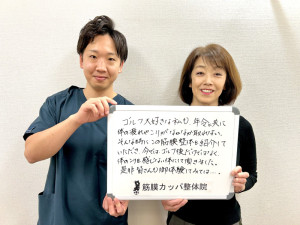 ゴルフ大好きな私も、年令と共に
体の疲れやこりがなかなか取れない。
そんな時にこの筋膜整体を紹介して
いただき、今ではゴルフ後だけではなく、
体のこりを感じない体にして頂きました。
是非皆さんも御体験してみては…。
筋膜カッパ整体院